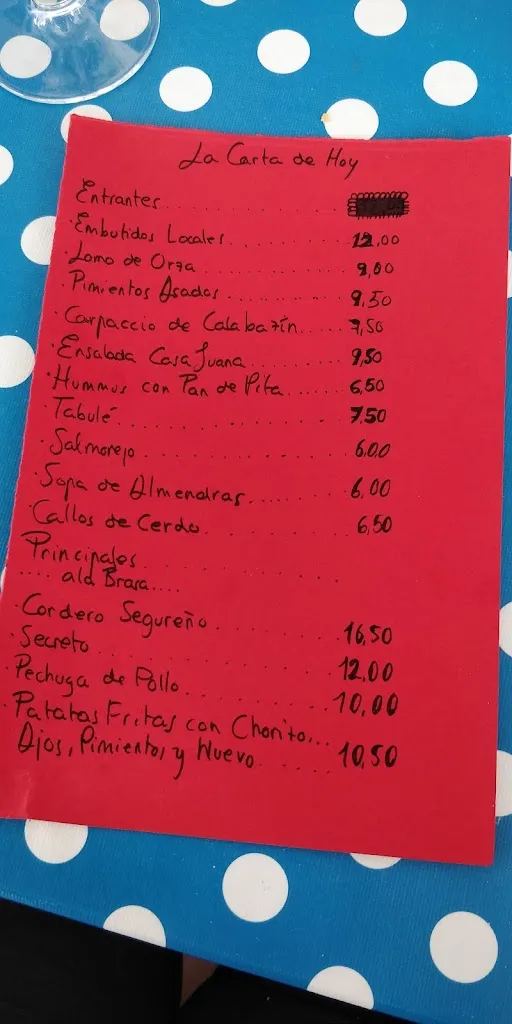 La Carta de Hoy
Entrantes..................
·Embutidos Locales............ 12,00
·Lomo de Orza............... 9,00
·Pimientos Asados............ 9,50
·Carpaccio de Calabazín..... 7,50
·Ensalada Casa Juana......... 9,50
·Hummus con Pan de Pita...... 6,50
·Tabulé.................. 7,50
·Salmorejo................ 6,00
·Sopa de Almendras......... 6,00
·Callos de Cerdo............ 6,50
Principales...............
.... a la Brasa....
·Cordero Segureño............ 16,50
·Secreto.................. 12,00
·Pechuga de Pollo............ 10,00
·Patatas Fritas con Chorito...
Ajos, Pimientos y Huevo....... 10,50